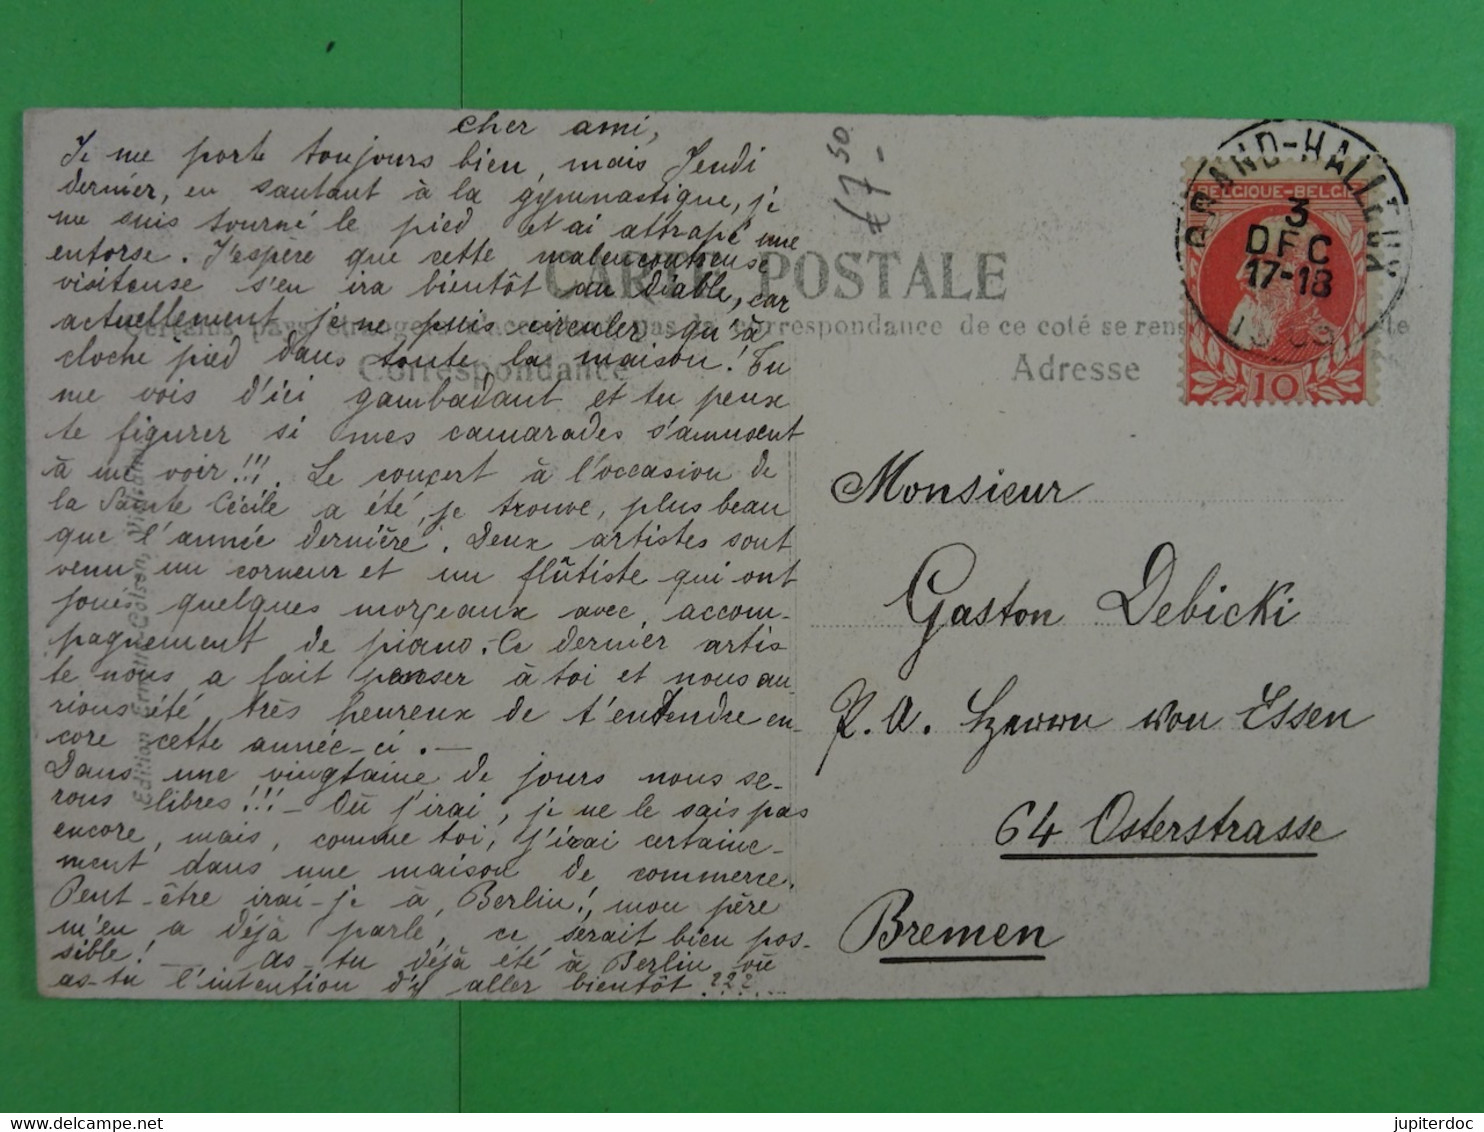 cher ami,
Je me porte toujours bien, mais Jeudi
dernier, en sautant à la gymnastique, je
me suis tourné le pied et ai attrapé une
entorse. J'espère que cette malencontreuse
visiteuse s'en ira bientôt au diable, car
actuellement, je ne puis circuler qu'à
cloche pied dans toute la maison! Tu
me vois d'ici gambadant et tu peux
te figurer si mes camarades s'amusent
à me voir!!! Le concert à l'occasion de
la Sainte Cécile a été, je trouve, plus beau
que l'année dernière. Deux artistes sont
venu un corneur et un flûtiste qui ont
joués quelques morçeaux avec accom-
pagnement de piano. Ce dernier artis
te nous a fait penser à toi et nous au-
rions été très heureux de t'entendre en-
core cette année-ci. —
Dans une vingtaine de jours nous se-
rons libres!!! — Où j'irai, je ne le sais pas
encore, mais, comme toi, j'irai certaine-
ment dans une maison de commerce.
Peut-être irai-je à Berlin!, mon père
m'en a déjà parlé, ce serait bien pos-
sible! — as-tu déjà été à Berlin ou
as-tu l'intention d'y aller bientôt ???...
€7 50 -
CARTE POSTALE
de ce coté se
Correspondance
Adresse
Edition Colson,
BELGIQUE-BELGIË
10
GRAND-HALLEUX
3
DEC
17-18
Monsieur
Gaston Debicki
P. A. von Essen
64 Osterstrasse
Bremen
jupiterdoc
delcampe.net